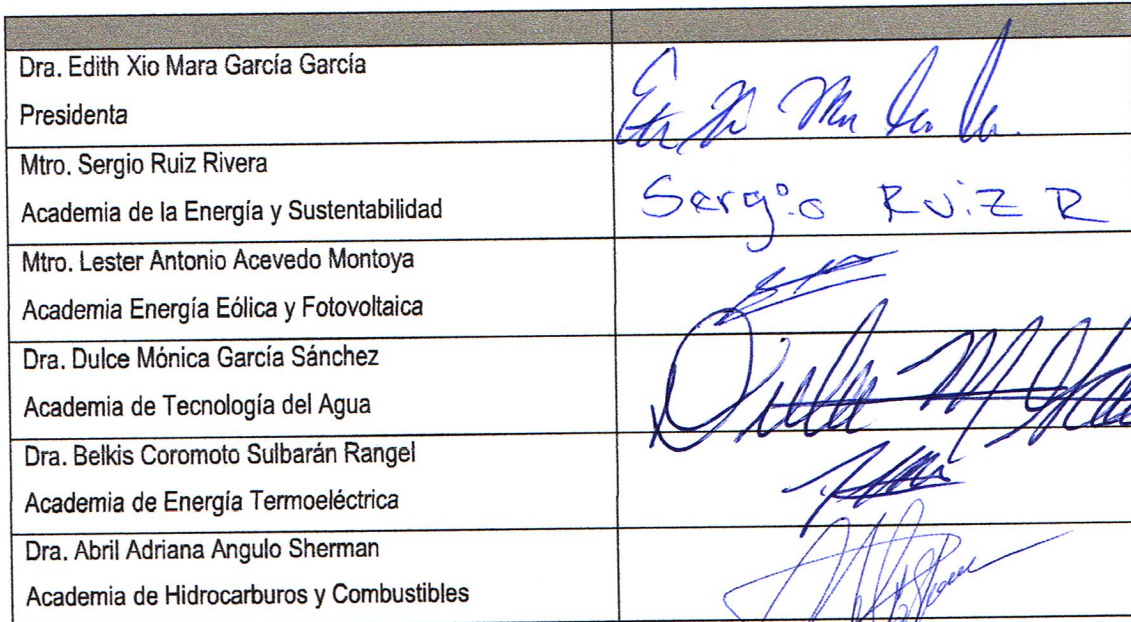 Dra. Edith Xio Mara García García
Presidenta
Mtro. Sergio Ruiz Rivera
Academia de la Energía y Sustentabilidad
Sergio Ruiz R
Mtro. Lester Antonio Acevedo Montoya
Academia Energía Eólica y Fotovoltaica
Dra. Dulce Mónica García Sánchez
Academia de Tecnología del Agua
Dra. Belkis Coromoto Sulbarán Rangel
Academia de Energía Termoeléctrica
Dra. Abril Adriana Angulo Sherman
Academia de Hidrocarburos y Combustibles